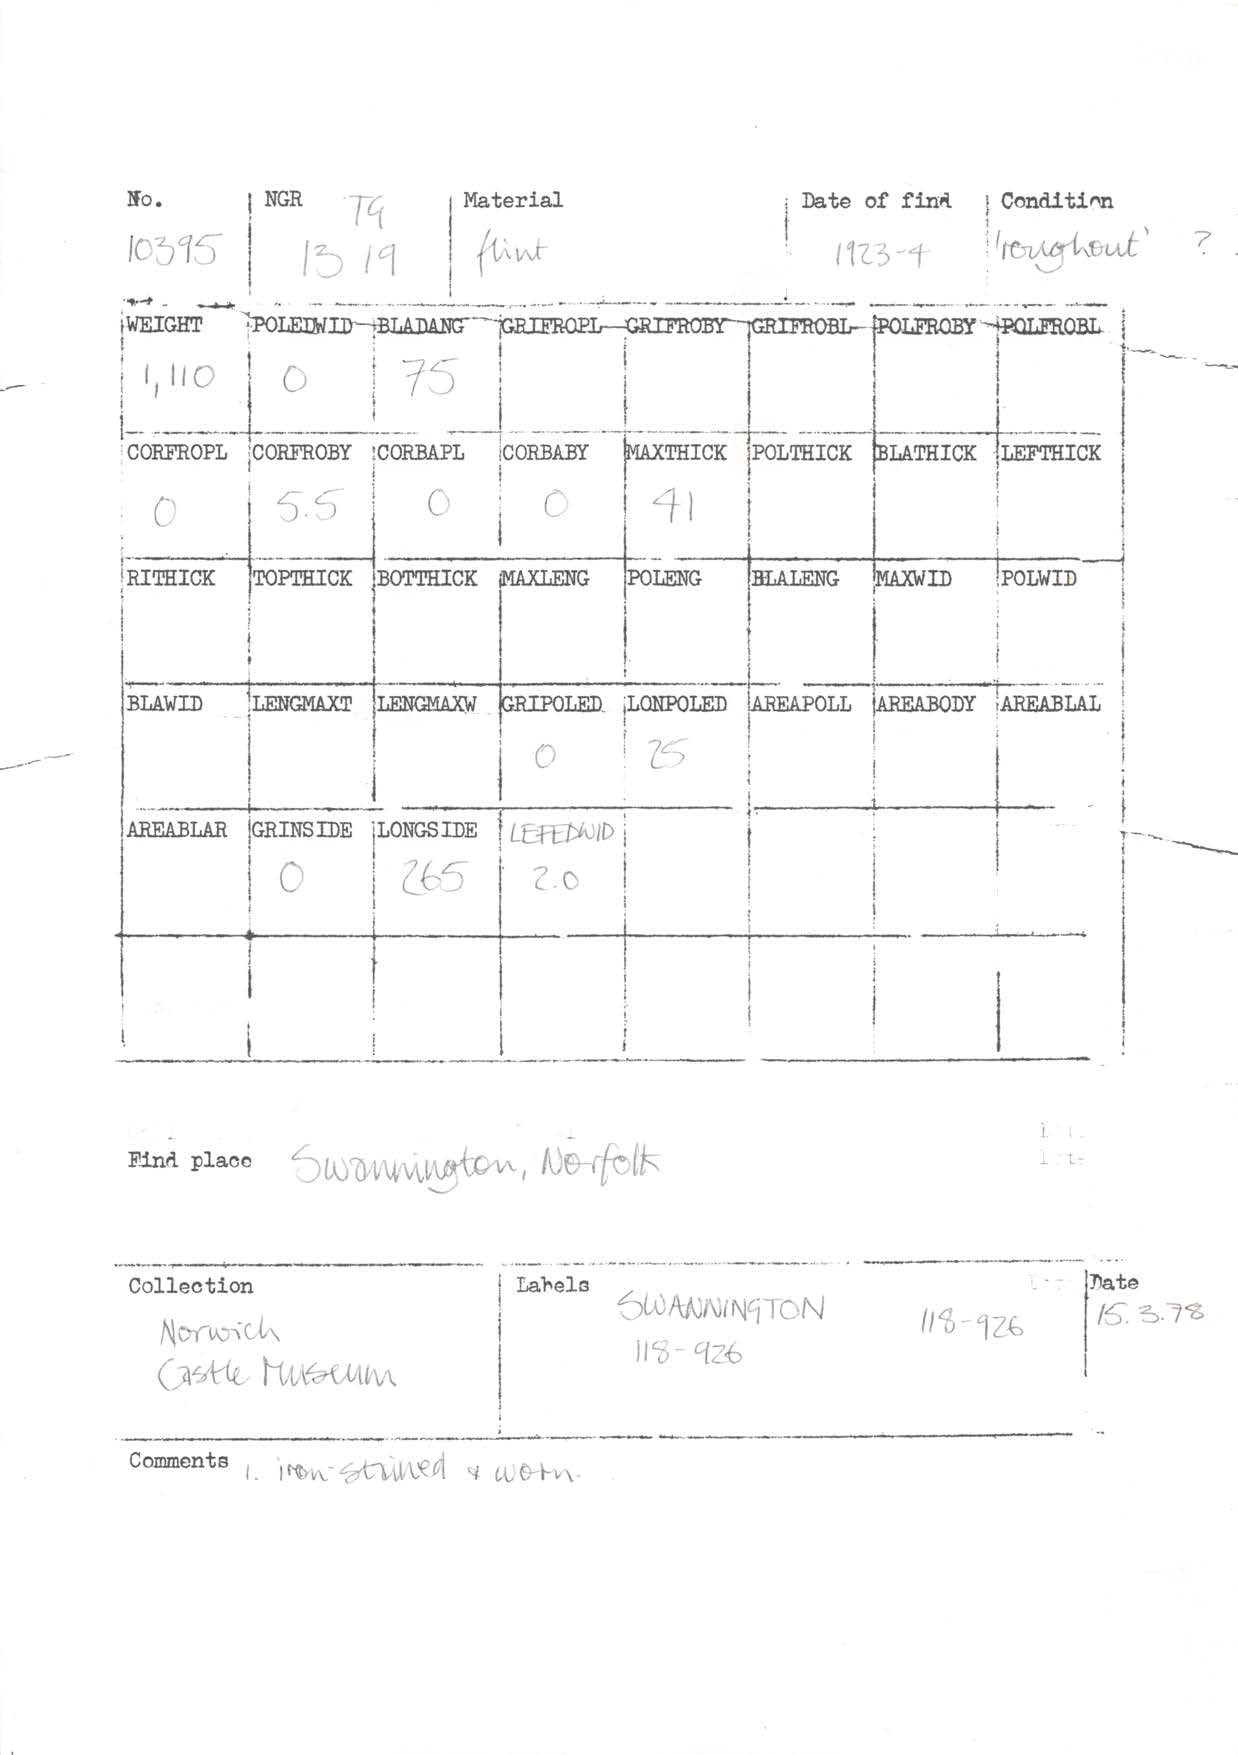 No. NGR TG Material Date of find Condition
10395 13 19 flint 1923-4 'roughout' ?
WEIGHT POLEDWID BLADANG GRIFROPL GRIFROBY GRIFROBL POLFROBY POLFROBL
1,110 0 75
CORFROPL CORFROBY CORBAPL CORBABY MAXTHICK POLTHICK BLATHICK LEFTHICK
0 5.5 0 0 41
RITHICK TOPTHICK BOTTHICK MAXLENG POLENG BLALENG MAXWID POLWID
BLAWID LENGMAXT LENGMAXW GRIPOLED LONPOLED AREAPOLL AREABODY AREABLAL
0 25
AREABLAR GRINSIDE LONGSIDE LEFEDWID
0 265 2.0
Find place Swannington, Norfolk
Collection Labels Date
Norwich SWANNINGTON 118-926 15.3.78
Castle Museum 118-926
Comments 1. iron-stained & worn.